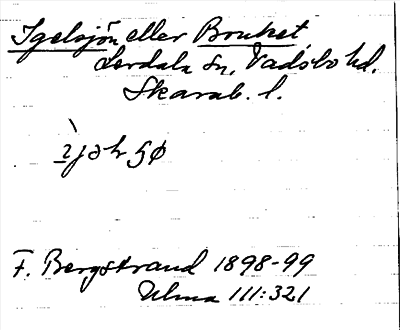 Igelsjön eller Bruket,
Lerdala sn, Vadsbo hd.
Skarab. l.
F. Bergstrand 1898-99
Ulma 111:321